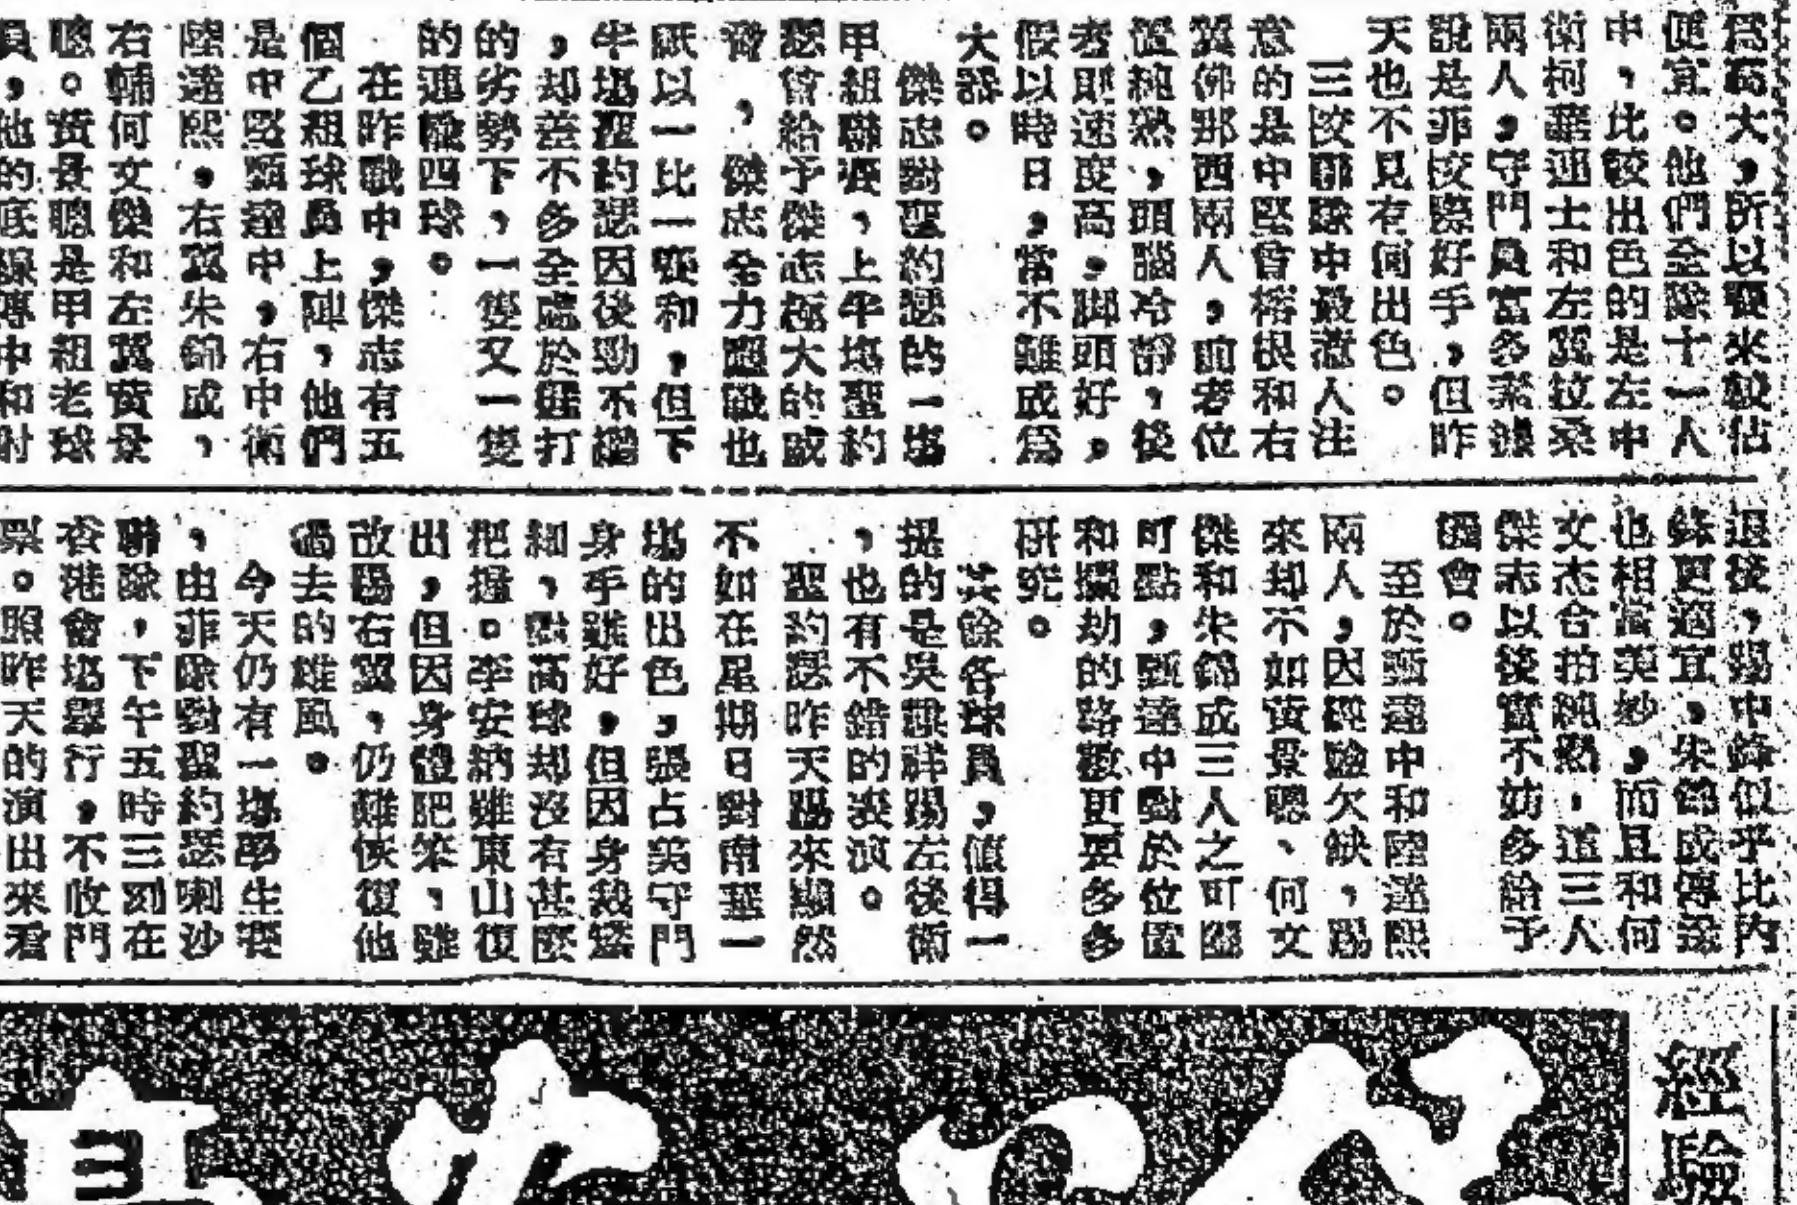 爲高大，所以要來較佔
便宜。他們全隊十一人
中，比較出色的是左中
衛柯華迺士和左翼拉桑
兩人，守門員富多素據
說是菲校際好手，但昨
天也不見有何出色。
三校聯隊中最惹人注
意的是中堅曾榕根和右
翼佛郍西兩人，前者位
置純熟，頭腦冷靜，後
者則速度高，脚頭好，
假以時日，當不難成爲
大器。
傑志對聖約瑟的一塲
甲組聯賽，上半塲聖約
瑟曾給予傑志極大的威
脅，傑志全力應戰也
祇以一比一賽和，但下
半塲聖約瑟因後勁不繼
，却差不多全處於捱打
的劣勢下，一隻又一隻
的連輸四球。
在昨戰中，傑志有五
個乙組球員上陣，他們
是中堅顏達中，右中衛
陸達熙，右翼朱錦成，
右輔何文傑和左翼黃景
聰。黃景聰是甲組老球
員，他的底線傳中和射
退後，踢中鋒似乎比內
鋒更適宜，朱錦成傳送
也相當美妙，而且和何
文杰合拍純熟，這三人
傑志以後實不妨多給予
機會。
至於顏達中和陸達熙
兩人，因經驗欠缺，踢
來却不如黃景聰、何文
傑和朱錦成三人之可圈
可點，顏達中對於位置
和攔刧的路數更要多多
研究。
其餘各球員，値得一
提的是吳祺祥踢左後衛
，也有不錯的表演。
聖約瑟昨天踢來顯然
不如在星期日對南華一
塲的出色，張占美守門
身手雖好，但因身裁矮
細，對高球却沒有甚麽
把握。李安納雖東山復
出，但因身體肥笨，雖
改踢右翼，仍難恢復他
過去的雄風。
今天仍有一塲學生賽
，由菲隊對聖約瑟喇沙
聯隊，下午五時三刻在
香港會塲舉行，不收門
票。照昨天的演出來看
經驗